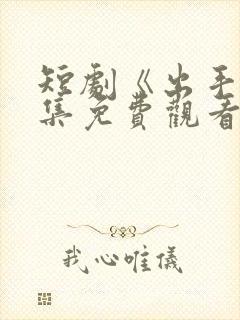 短劇《出手
集免費觀看
我心唯儀